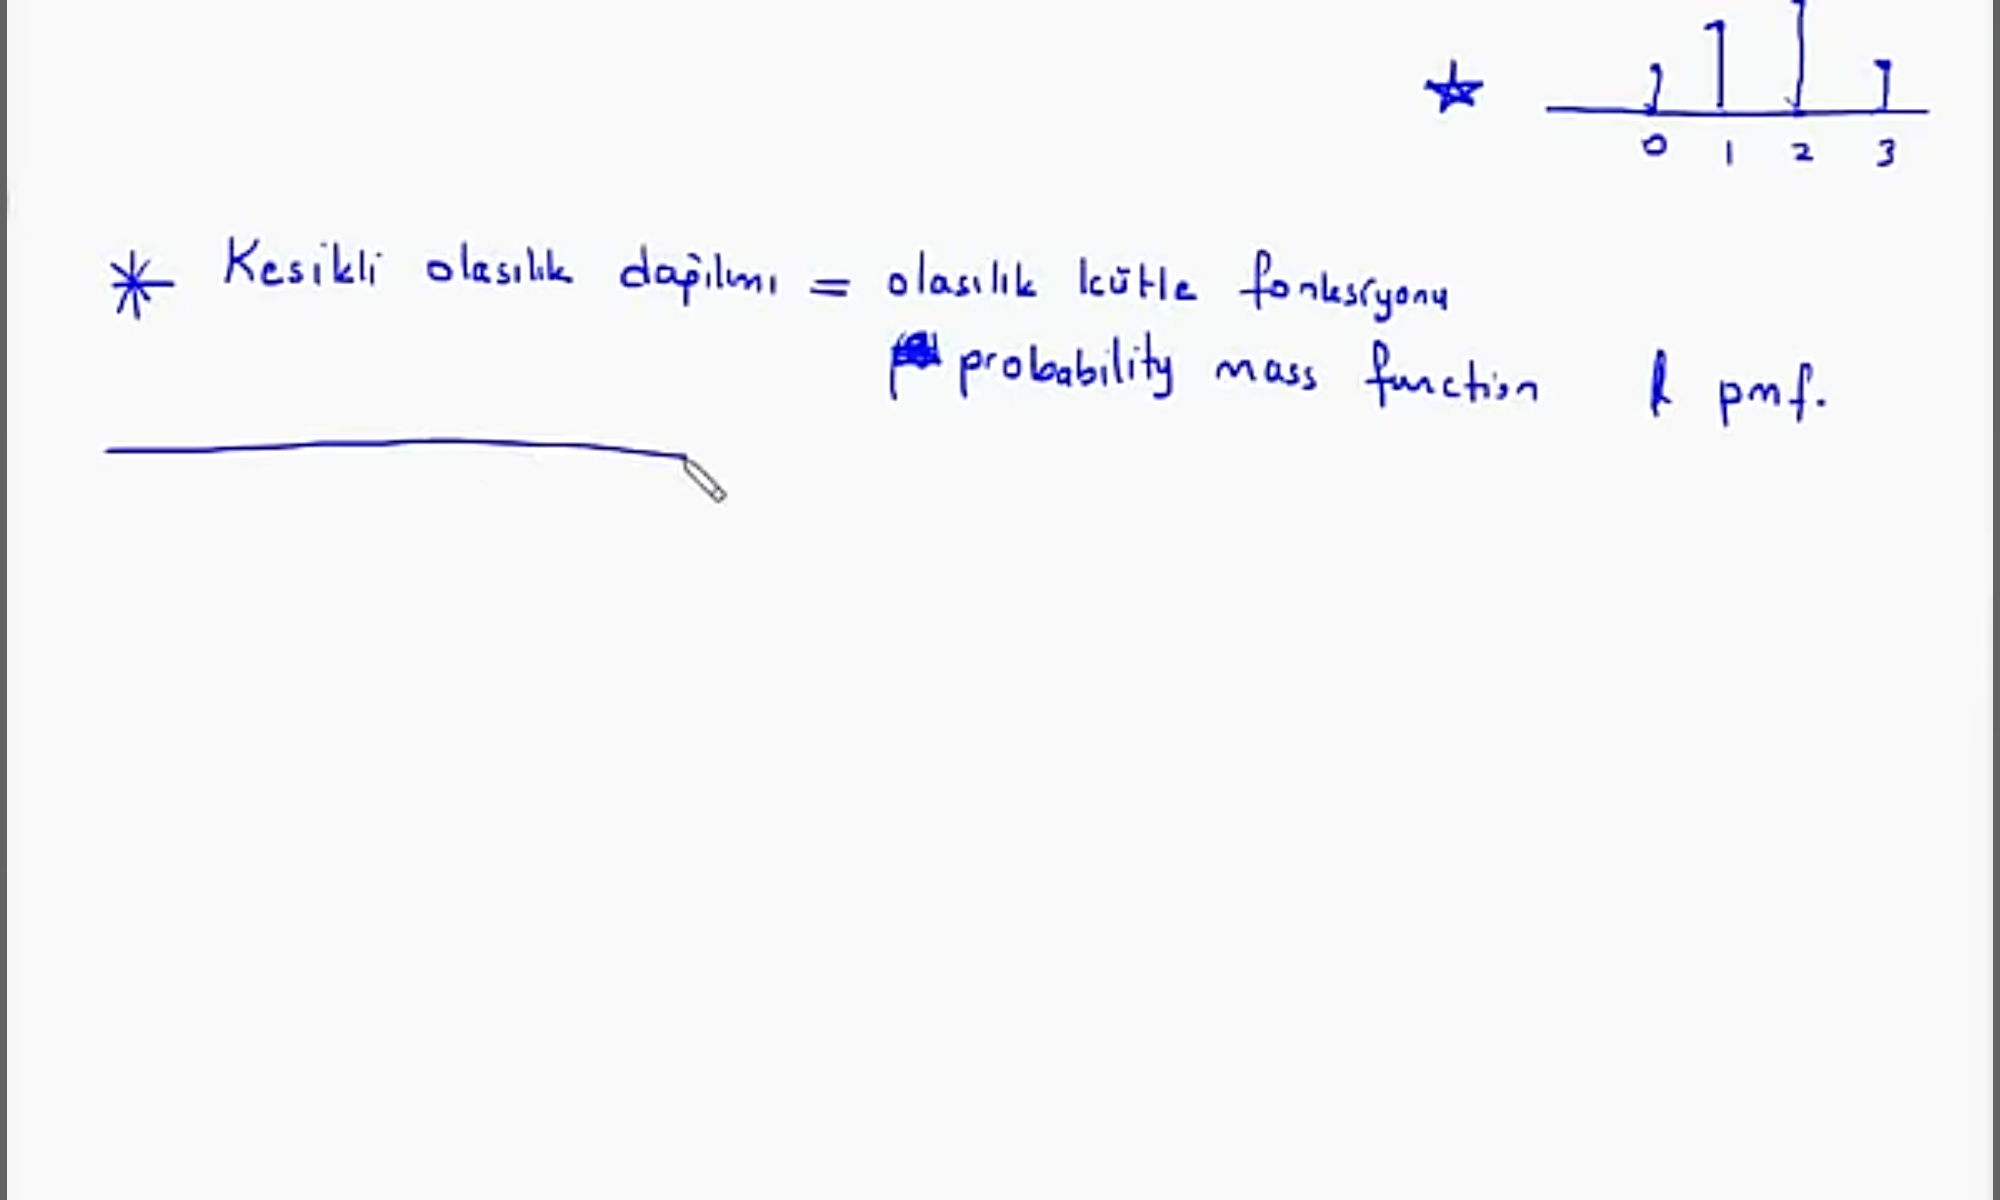 0 1 2 3
* Kesikli olasılık dağılımı = olasılık kütle fonksiyonu
probability mass function pmf.